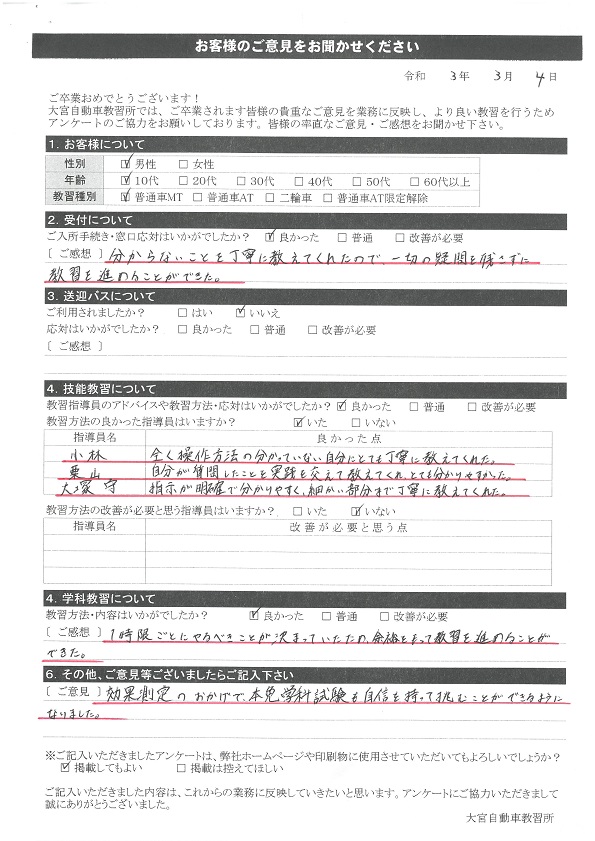 お客様のご意見をお聞かせください
令和 3年 3月 4日
ご卒業おめでとうございます！
大宮自動車教習所では、ご卒業されます皆様の貴重なご意見を業務に反映し、より良い教習を行うため
アンケートのご協力をお願いしております。皆様の率直なご意見・ご感想をお聞かせ下さい。
1. お客様について
性別 ☑男性 □女性
年齢 ☑10代 □20代 □30代 □40代 □50代 □60代以上
教習種別 ☑普通車MT □普通車AT □二輪車 □普通車AT限定解除
2. 受付について
ご入所手続き・窓口応対はいかがでしたか？ ☑良かった □普通 □改善が必要
〔ご感想〕分からないことを丁寧に教えてくれたので、一切の疑問を残さずに
教習を進めることができた。
3. 送迎バスについて
ご利用されましたか？ □はい ☑いいえ
応対はいかがでしたか？ □良かった □普通 □改善が必要
〔ご感想〕
4. 技能教習について
教習指導員のアドバイスや教習方法・応対はいかがでしたか？ ☑良かった □普通 □改善が必要
教習方法の良かった指導員はいますか？ ☑いた □いない
指導員名 良かった点
小林 全く操作方法の分かっていない自分にとても丁寧に教えてくれた。
栗山 自分が質問したことを実践を交えて教えてくれ、とても分かりやすかった。
大塚守 指示が明確で分かりやすく、細かい部分まで丁寧に教えてくれた。
教習方法の改善が必要と思う指導員はいますか？ □いた ☑いない
指導員名 改善が必要と思う点
4. 学科教習について
教習方法・内容はいかがでしたか？ ☑良かった □普通 □改善が必要
〔ご感想〕1時限ごとにやるべきことが決まっていたため、余裕をもって教習を進めることが
できた。
6. その他、ご意見等ございましたらご記入下さい
〔ご意見〕効果測定のおかげで、本免学科試験も自信を持って挑むことができるように
なりました。
※ご記入いただきましたアンケートは、弊社ホームページや印刷物に使用させていただいてもよろしいでしょうか？
☑掲載してもよい □掲載は控えてほしい
ご記入いただきました内容は、これからの業務に反映していきたいと思います。アンケートにご協力いただきまして
誠にありがとうございました。
大宮自動車教習所